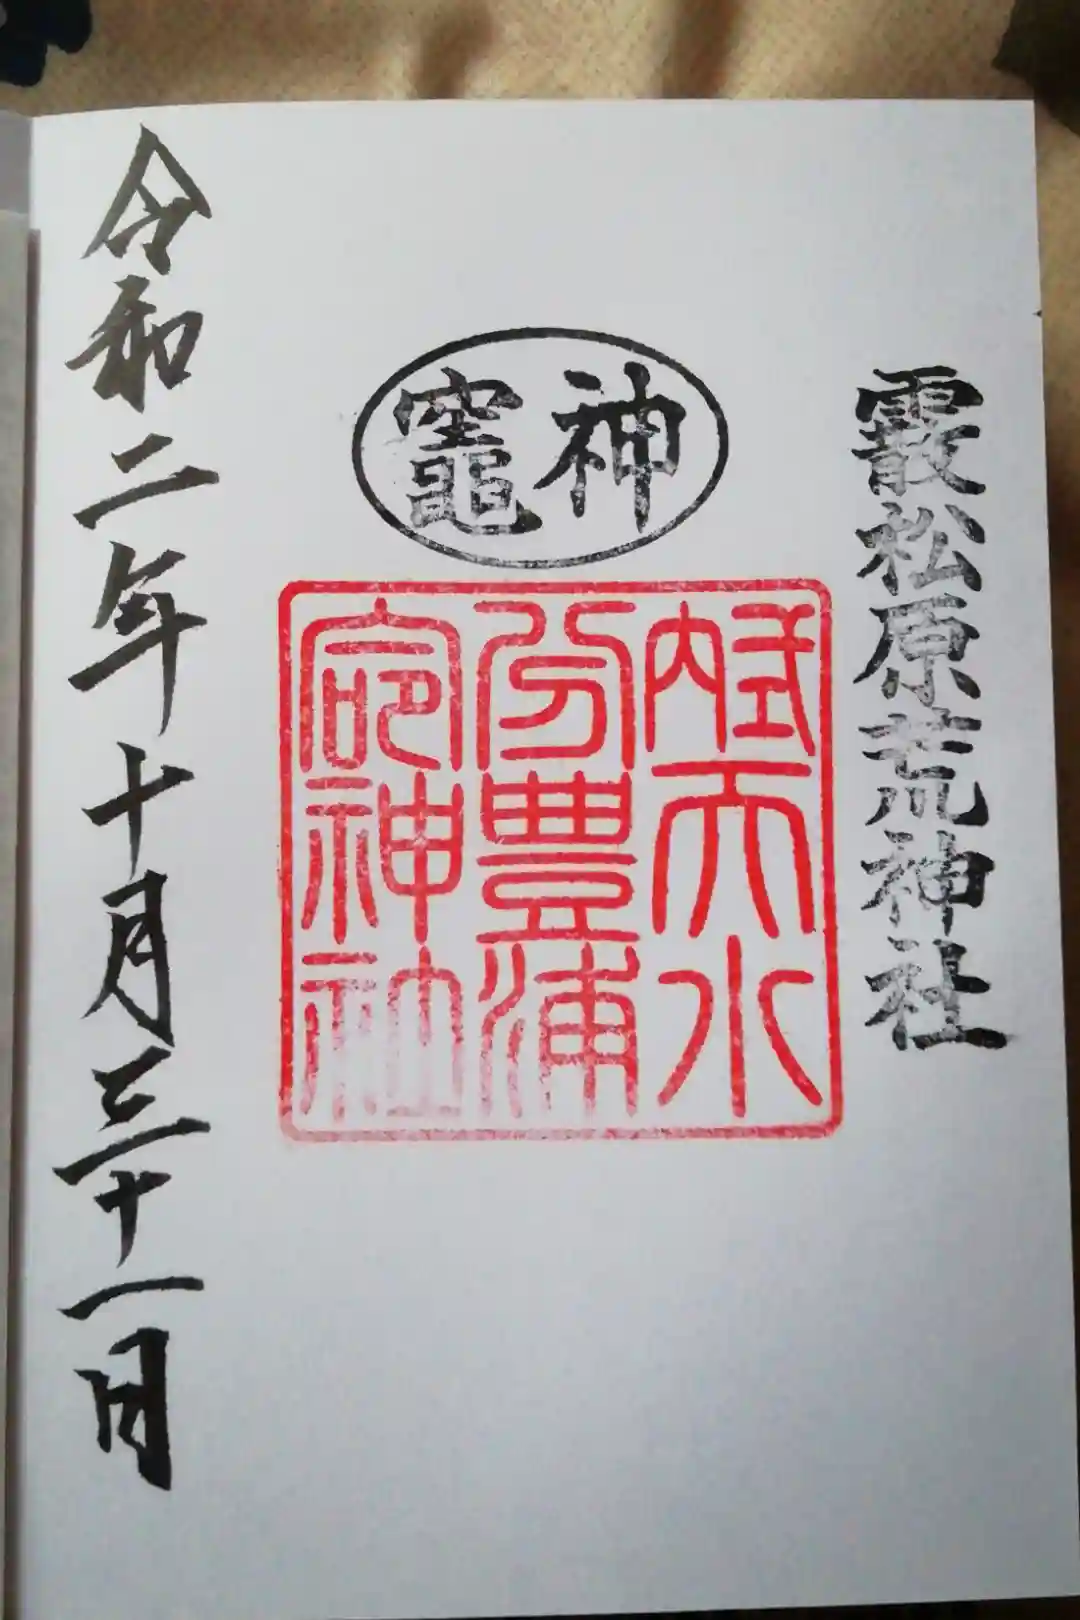 霰松原荒神社
神竈
式内天水
分豊浦
命神社
令和二年十月三十一日